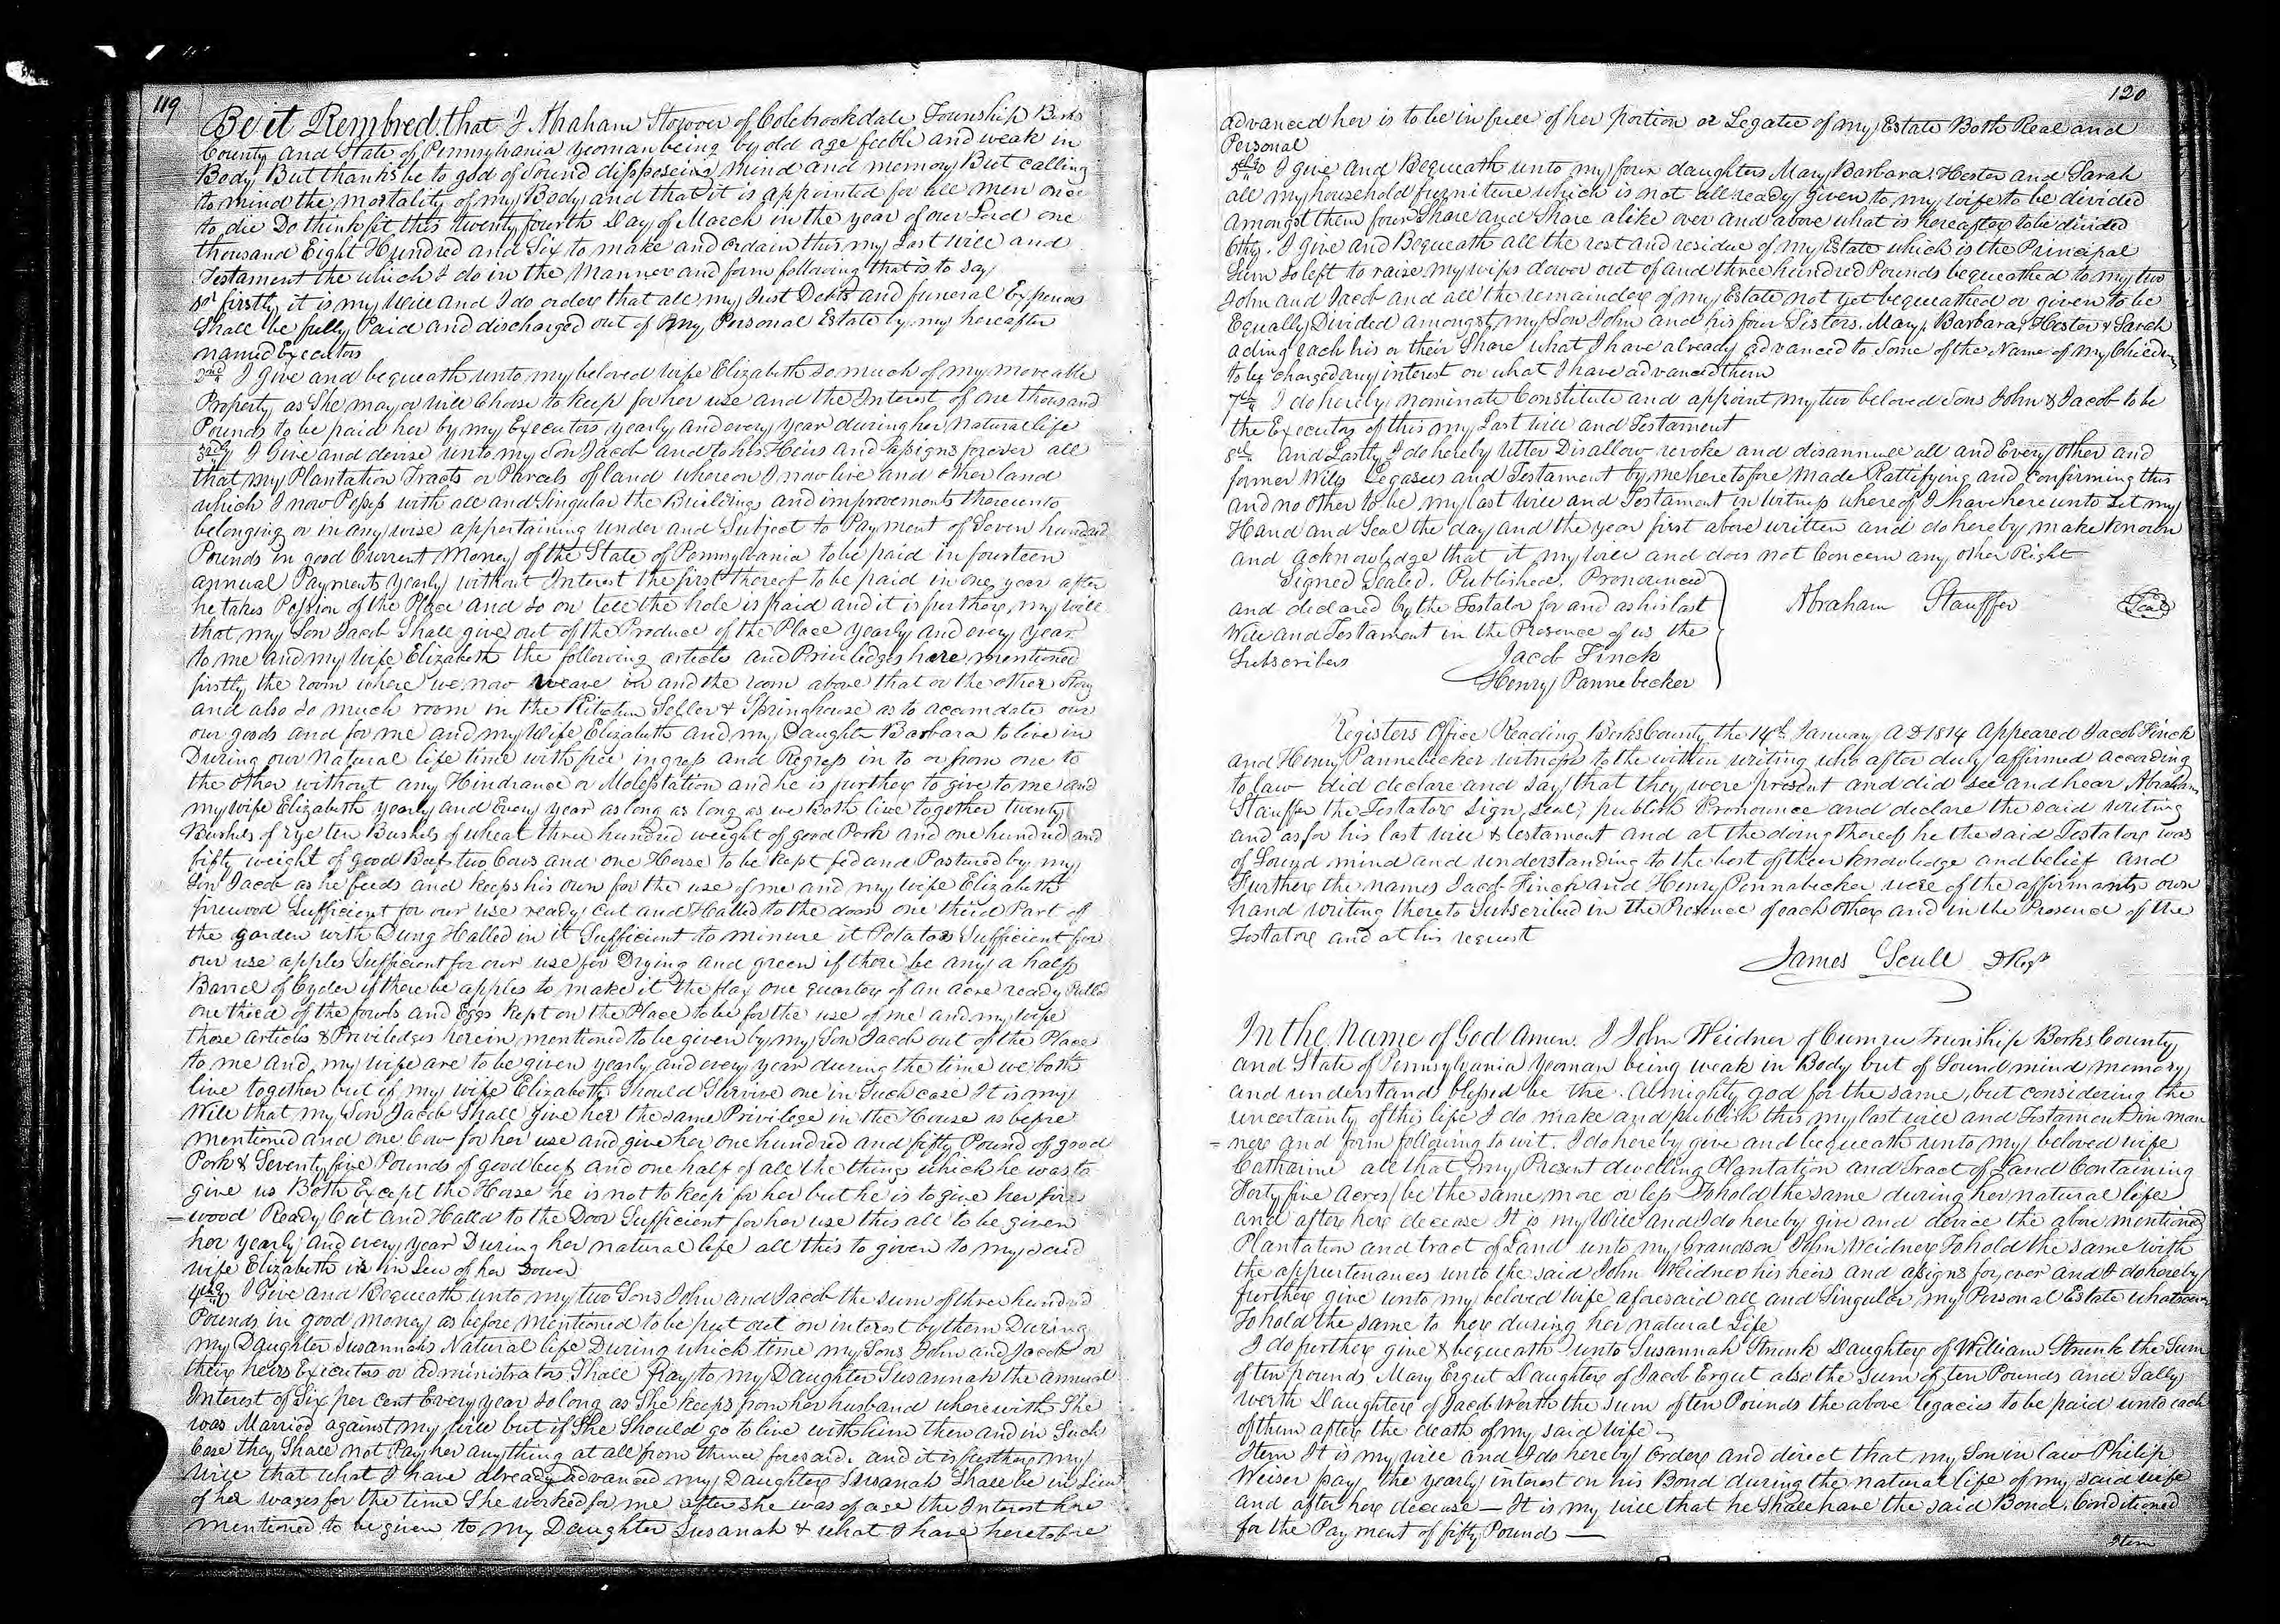 119
Be it Rembred that I Abraham Stowver of Colebrookdale Township Berks
County and State of Pennsylvania yeoman being by old age feeble and weak in
Body But thanks be to god of Sound disposseing mind and memory But calling
to mind the mortality of my Body and that it is appointed for all men once
to die Do think fit this twenty fourth Day of March in the year of our Lord one
thousand Eight Hundred and Six to make and ordain this my Last will and
Testament the which I do in the Manner and form following that is to say
firstly it is my Will and I do order that all my Just Debts and funeral Expences
Shall be fully Paid and discharged out of My Personal Estate by my hereafter
named Executors
2nd I give and bequeath unto my beloved wife Elizabeth so much of my moveable
Property as She may or will Choose to keep for her use and the Interest of one thousand
Pounds to be paid her by my Executors yearly and every year during her natural life
3rdly I Give and devise unto my Son Jacob and to his Heirs and Assigns forever all
that my Plantation Tracts or Parcels of land whereon I now live and other land
which I now Posess with all and Singular the Buildings and improvements thereunto
belonging or in any wise appertaining under and Subject to Payment of Seven hundred
Pounds in good Current Money of the State of Pennsylvania to be paid in fourteen
annual Payments yearly without Interest the first thereof to be paid in one year after
he takes Possion of the Place and so on tell the hole is paid and it is further my will
that my Son Jacob Shall give out of the Produce of the Place yearly and every year
to me and my wife Elizabeth the following articles and Priviledges here mentioned
firstly the room where we now weave in and the room above that on the other Story
and also so much room in the Kitchen Seller & Springhouse as to accomdate our
our goods and for me and my Wife Elizabeth and my Daughter Barbara to live in
During our Natural life time with free ingress and Regress in to or from one to
the other without any Hindrance or Molesstation and he is further to give to me and
my wife Elizabeth yearly and Every year as long as long as we both live together twenty
Bushels of rye ten Bushels of wheat three hundred weight of good Pork and one hundred and
fifty weight of good Beef two Cows and one Horse to be kept fed and Pastured by my
Son Jacob as he feeds and keeps his own for the use of me and my wife Elizabeth
firewood Sufficient for our use ready cut and Halled to the door one third Part of
the garden with Dung Halled in it Sufficient to minure it Potatoes Sufficient for
our use apples Sufficient for our use for Drying and green if there be any a half
Barrel of Cyder if there be apples to make it the flax one quarter of an acre ready Pulled
one third of the fowls and Eggs kept on the Place to be for the use of me and my wife
those articles & Priviledges herein mentioned to be given by my Son Jacob out of the Place
to me and my wife are to be given yearly and every year during the time we both
live together but if my wife Elizabeth Should Survive one in Such case It is my
Will that my Son Jacob Shall give her the same Privilege in the House as before
mentioned and one Cow for her use and give her one hundred and fifty Pound of good
Pork & Seventy five Pounds of good beef and one half of all the things which he was to
give us Both Except the Horse he is not to keep for her but he is to give her fire
wood Ready Cut and Halld to the Door Sufficient for her use this all to be given
her yearly and every year During her natural life all this to given to my said
wife Elizabeth is in Leu of her Dower
4thly I Give and Bequeath unto my two Sons John and Jacob the sum of three hundred
Pounds in good money as before mentioned to be put out on interest by them During
my Daughter Susannahs Natural life During which time my Sons John and Jacob or
their heirs Executors or administrators Shall Pay to my Daughter Susannah the annual
Interest of Six per cent Every year so long as She keeps from her husband wherewith She
was Married against my will but if She Should go to live with him then and in Such
Case they Shall not Pay her anything at all from thence foresaid. and it is further my
Will that what I have already advanced my Daughter Susanah Shall be in Lieu
of her wages for the time She worked for me after she was of age the Interest here
mentioned to be given to my Daughter Susanah & what I have heretofore
120
advanced her is to be in full of her portion or Legatee of my Estate Both Real and
Personal
5thly I give and Bequeath unto my four daughters Mary Barbara Hester and Sarah
all my household furniture which is not allready given to my wife to be divided
amongst them four Share and Share alike over and above what is hereafter to be divided
6thly. I give and Bequeath all the rest and residue of my Estate which is the Principal
Sum so left to raise my wifes dower out of and three hundred Pounds bequeathed to my two
John and Jacob and all the remainder of my Estate not yet bequeathed or given to be
Equally Divided amongst my Son John and his four Sisters. Mary, Barbara, Hester & Sarah
ading each his or their Share what I have already advanced to Some of the Name of my Children
to be charged any interest on what I have advanced them
7th I do hereby nominate Constitute and appoint my two beloved Sons John & Jacob to be
the Executors of this my Last will and Testament
8th And Lastly I do hereby Utter Disallow revoke and disannull all and Every other and
former Wills Legases and Testament by me heretofore Made Rattifying and Confirming this
and no other to be my last will and Testament in witness where of I have here unto Set my
Hand and Seal the day and the year first above written and do hereby make known
and acknowledge that it my will and does not Concern any other Right
Signed Sealed. Published. Pronounced
and declared by the Testator for and as his last
Will and Testament in the Presence of us the
Subscribers
Jacob Finck
Henry Pannebecker
Abraham Stauffer
Seal
Registers Office Reading Berks County the 14th January AD 1814 Appeared Jacob Finck
and Henry Pannebecker witness to the within writing who after duly affirmed according
to law did declare and say that they were present and did see and hear Abraham
Stauffer the Testator sign, seal, publish Pronounce and declare the said writing
and as for his last will & testament and at the doing thereof he the said Testator was
of Sound mind and understanding to the best of their knowledge and belief and
Further the names Jacob Finck and Henry Pennabecker were of the affirmants own
hand writing thereto Subscribed in the Presence of each other and in the Presence of the
Testator and at his request
James Scull D Regr
In the Name of God Amen. I John Weidner of Cumru Township Berks County
and State of Pennsylvania Yeoman being weak in Body but of Sound mind memory
and understand blessed be the Almighty god for the same, but considering the
uncertainty of this life I do make and publish this my last will and Testament in man
= ner and form following to wit. I do hereby give and bequeath unto my beloved wife
Catharine all that my Present dwelling Plantation and Tract of Land Containing
Forty five acres (be the same more or less To hold the same during her natural life
and after here decease It is my Will and I do hereby give and device the above mentioned
Plantation and tract of Land unto my Grandson John Weidner To hold the same with
the appurtenances unto the said John Weidner his heirs and assigns for ever and I do hereby
further give unto my beloved wife aforesaid all and Singular my Personal Estate whatsoever
To hold the same to here during her natural Life
I do further give & bequeath unto Susannah Strunk Daughter of William Strunk the Sum
of ten pounds Mary Ergut Daughter of Jacob Ergut also the Sum of ten Pounds and Sally
Werth Daughter of Jacob Werth the Sum of ten Pounds the above legacies to be paid unto each
of them after the death of my said wife
Item It is my will and I do hereby order and direct that my Son in law Philip
Weiser pay the yearly interest on his Bond during the natural life of my said wife
and after here decease — It is my will that he Shall have the said Bond. Conditioned
for the Payment of fifty Pound —
Item